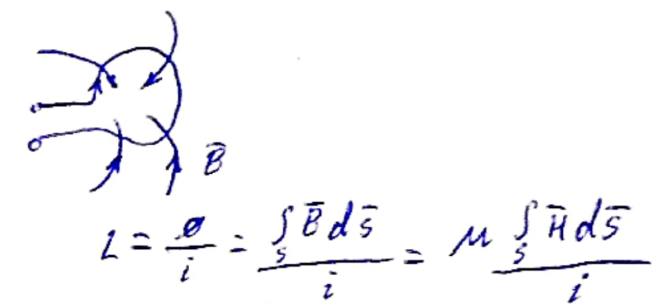 B̄
L = Ф/i = ∫_S B̄ d s̄ / i = μ ∫_S H̄ d s̄ / i